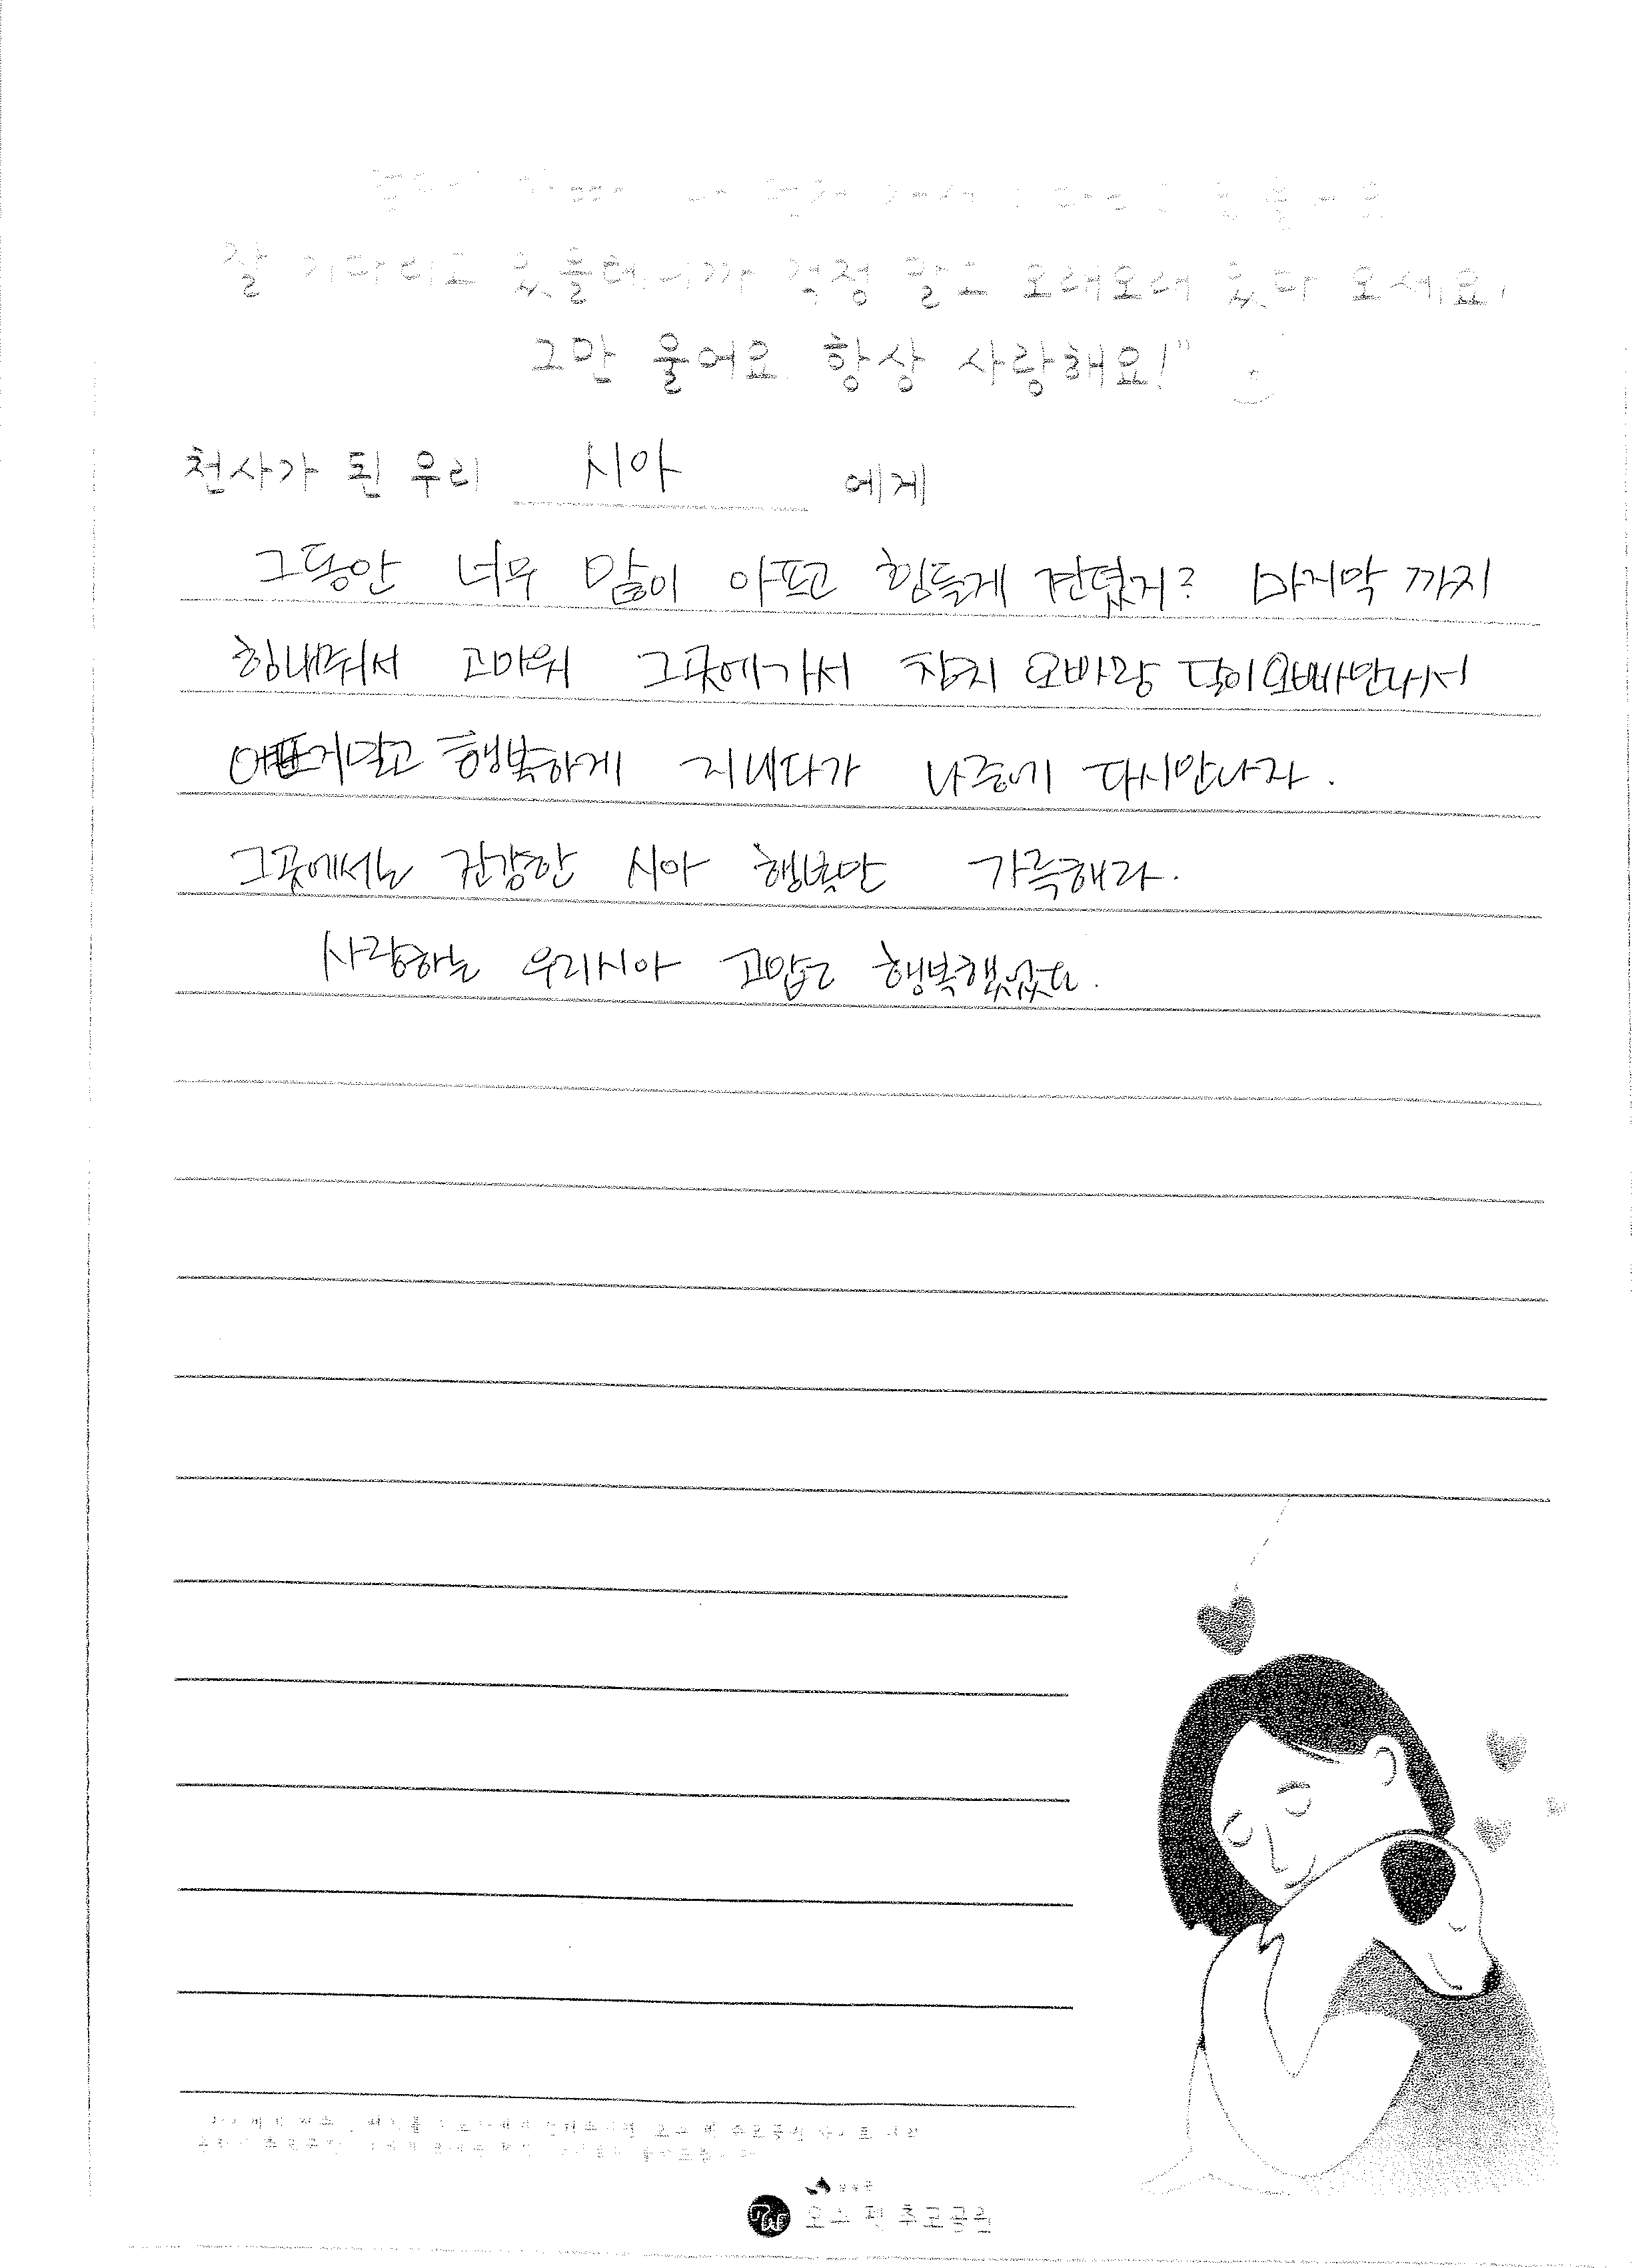 잘 기다리고 있을테니까 걱정 말고 오래오래 있다 오세요!
그만 울어요. 항상 사랑해요!"
천사가 된 우리 시아 에게
그동안 너무 많이 아프고 힘들게 견뎠지? 마지막 까지
힘내줘서 고마워 그곳에가서 오빠랑 오빠만나서
말고 행복하게 지내다가 나중에 다시만나자.
그곳에서는 건강한 시아 행복만 가득해라.
사랑하는 우리시아 고맙고 행복했었다.
추모공원